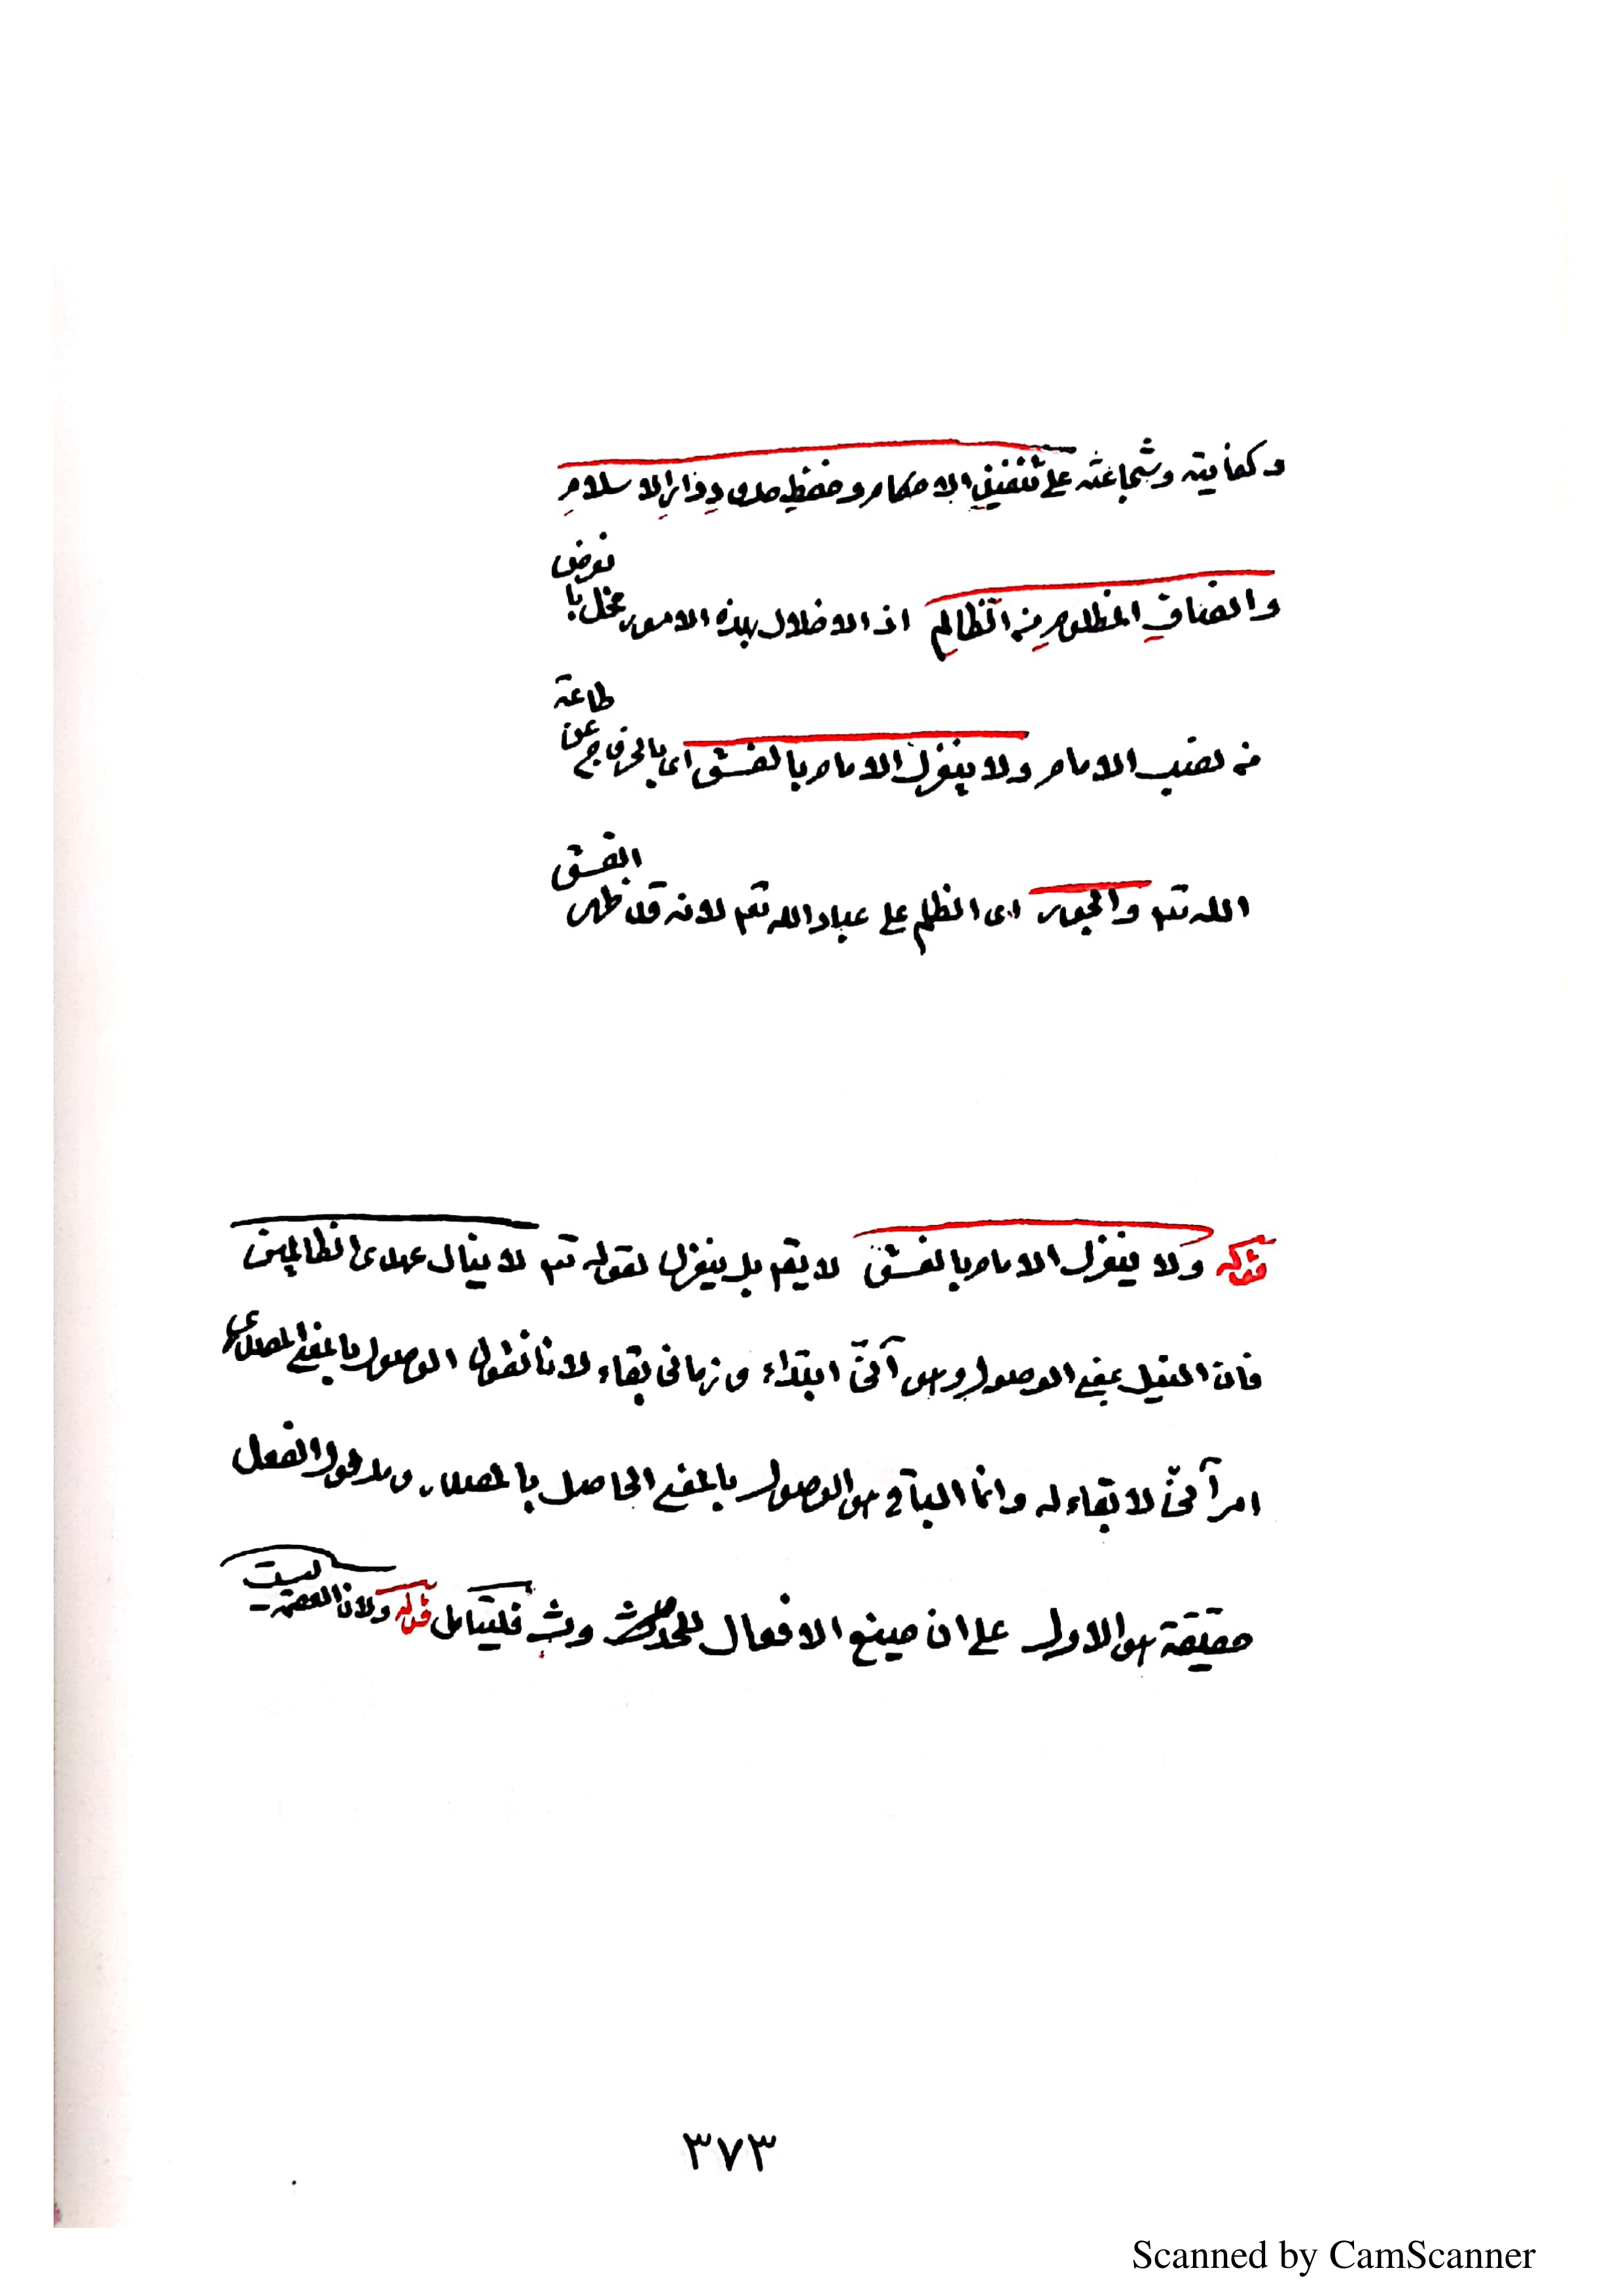 وكفايته وشجاعته على تنفيذ الاحكام وحفظ حدود دار الاسلام
وانصاف المظلوم من الظالم اذ الاخلال بهذه الامور مخل بالغرض
من نصب الامام ولا ينعزل الامام بالفسق اى بالخروج عن طاعة
الله تع والجور اى الظلم على عباد الله تع لانه قد ظهر الفسق
قوله ولا ينعزل الامام بالفسق لا يقم بل ينعزل لقوله تع لا ينال عهدى الظالمين
فان النيل بمعنى الوصول وهو آنىّ ابتداء وزمانى بقاء لانا نقول الوصول بالمعنى المصدرى
امر آنىّ لا بقاء له وانما الباقى هو الوصول بالمعنى الحاصل بالمصدر ومدلول الفعل
حقيقة هو الاول على ان صيغ الافعال للحدوث فليتأمل قوله ولان العصمة ليست
٣٧٣
Scanned by CamScanner